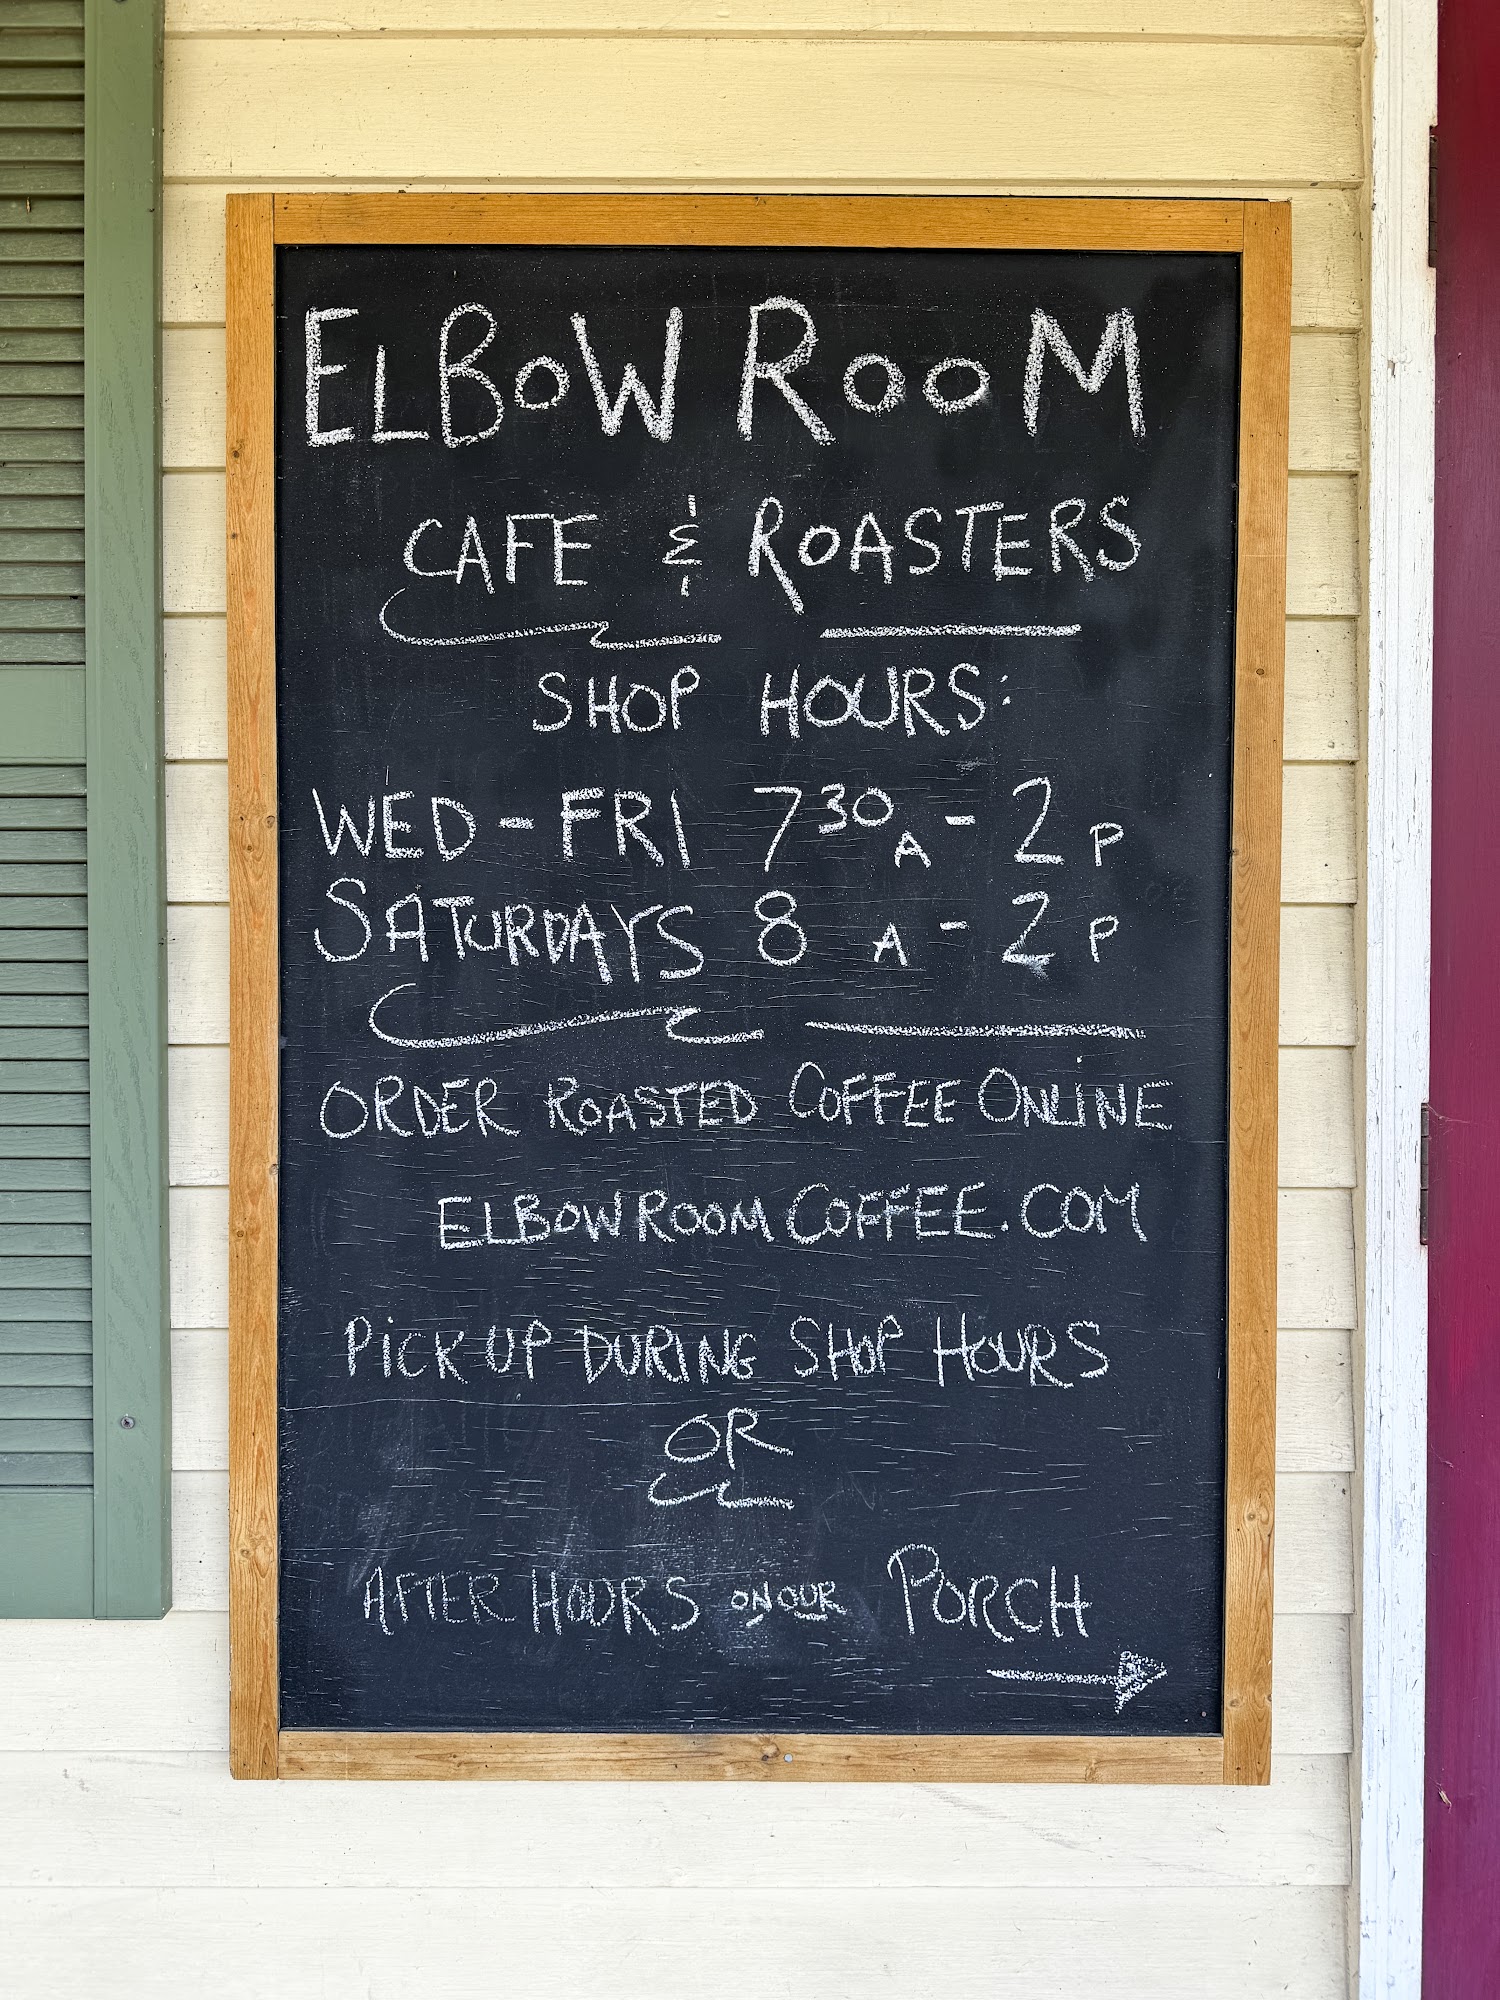 ELBOW ROOM
CAFE & ROASTERS
SHOP HOURS:
WED - FRI 7 30 A - 2 P
SATURDAYS 8 A - 2 P
ORDER ROASTED COFFEE ONLINE
ELBOWROOMCOFFEE.COM
PICK UP DURING SHOP HOURS
OR
AFTER HOURS ON OUR PORCH